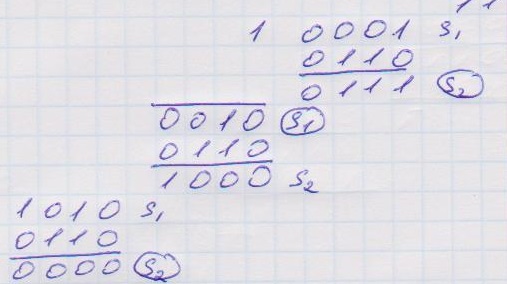 1 0001 s₁
0110
0111 s₂
0010 s1
0110
1000 s₂
1010 s₁
0110
0000 s₂